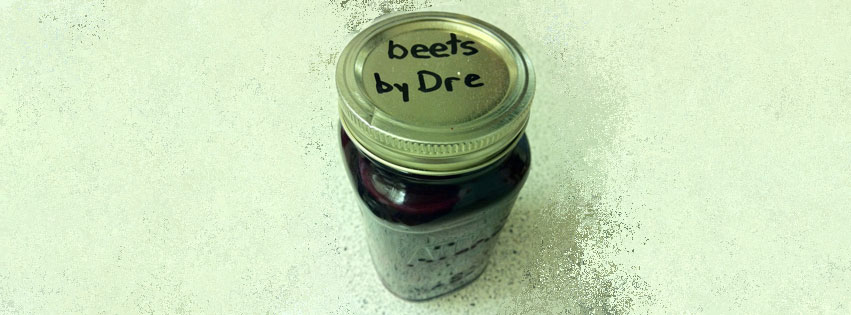 beets
by Dre